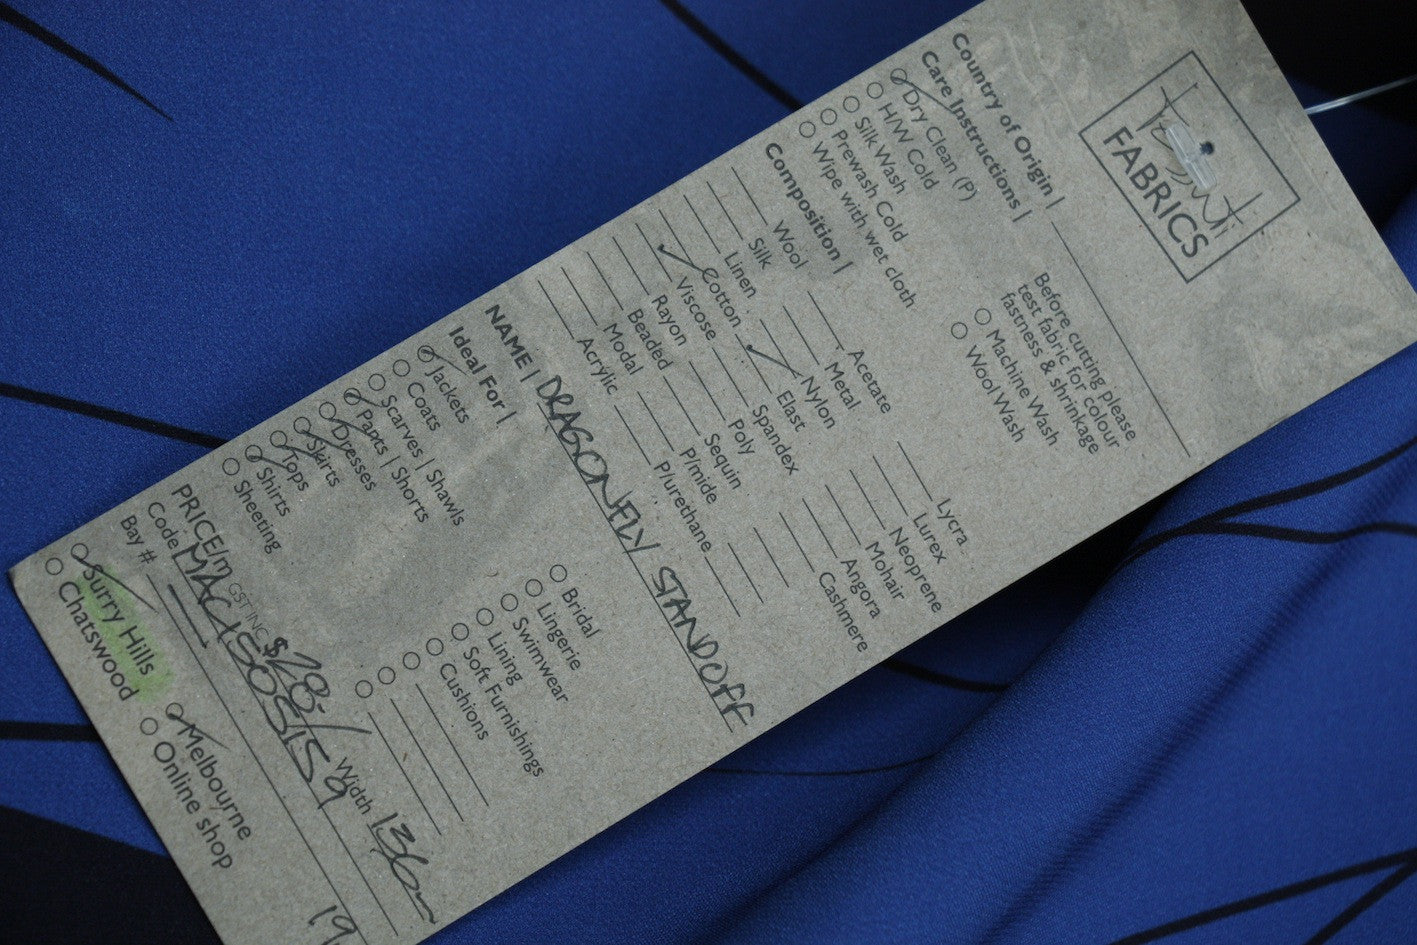 Tessuti
FABRICS
Country of Origin |
Care Instructions |
Dry Clean (P)
H/W Cold
Silk Wash
Prewash Cold
Wipe with wet cloth
Before cutting please
test fabric for colour
fastness & shrinkage
Machine Wash
Wool Wash
Composition |
Wool
Silk
Linen
Cotton
Viscose
Rayon
Beaded
Modal
Acrylic
Acetate
Metal
Nylon
Elast
Spandex
Poly
Sequin
P/mide
P/urethane
Lycra
Lurex
Neoprene
Mohair
Angora
Cashmere
NAME | DRAGONFLY STANDOFF
Ideal For |
Jackets
Coats
Scarves | Shawls
Pants | Shorts
Dresses
Skirts
Tops
Shirts
Sheeting
Bridal
Lingerie
Swimwear
Lining
Soft Furnishings
Cushions
PRICE/m GST INC $28.-/ Width 136
Code
Bay #
19
Surry Hills
Chatswood
Melbourne
Online shop